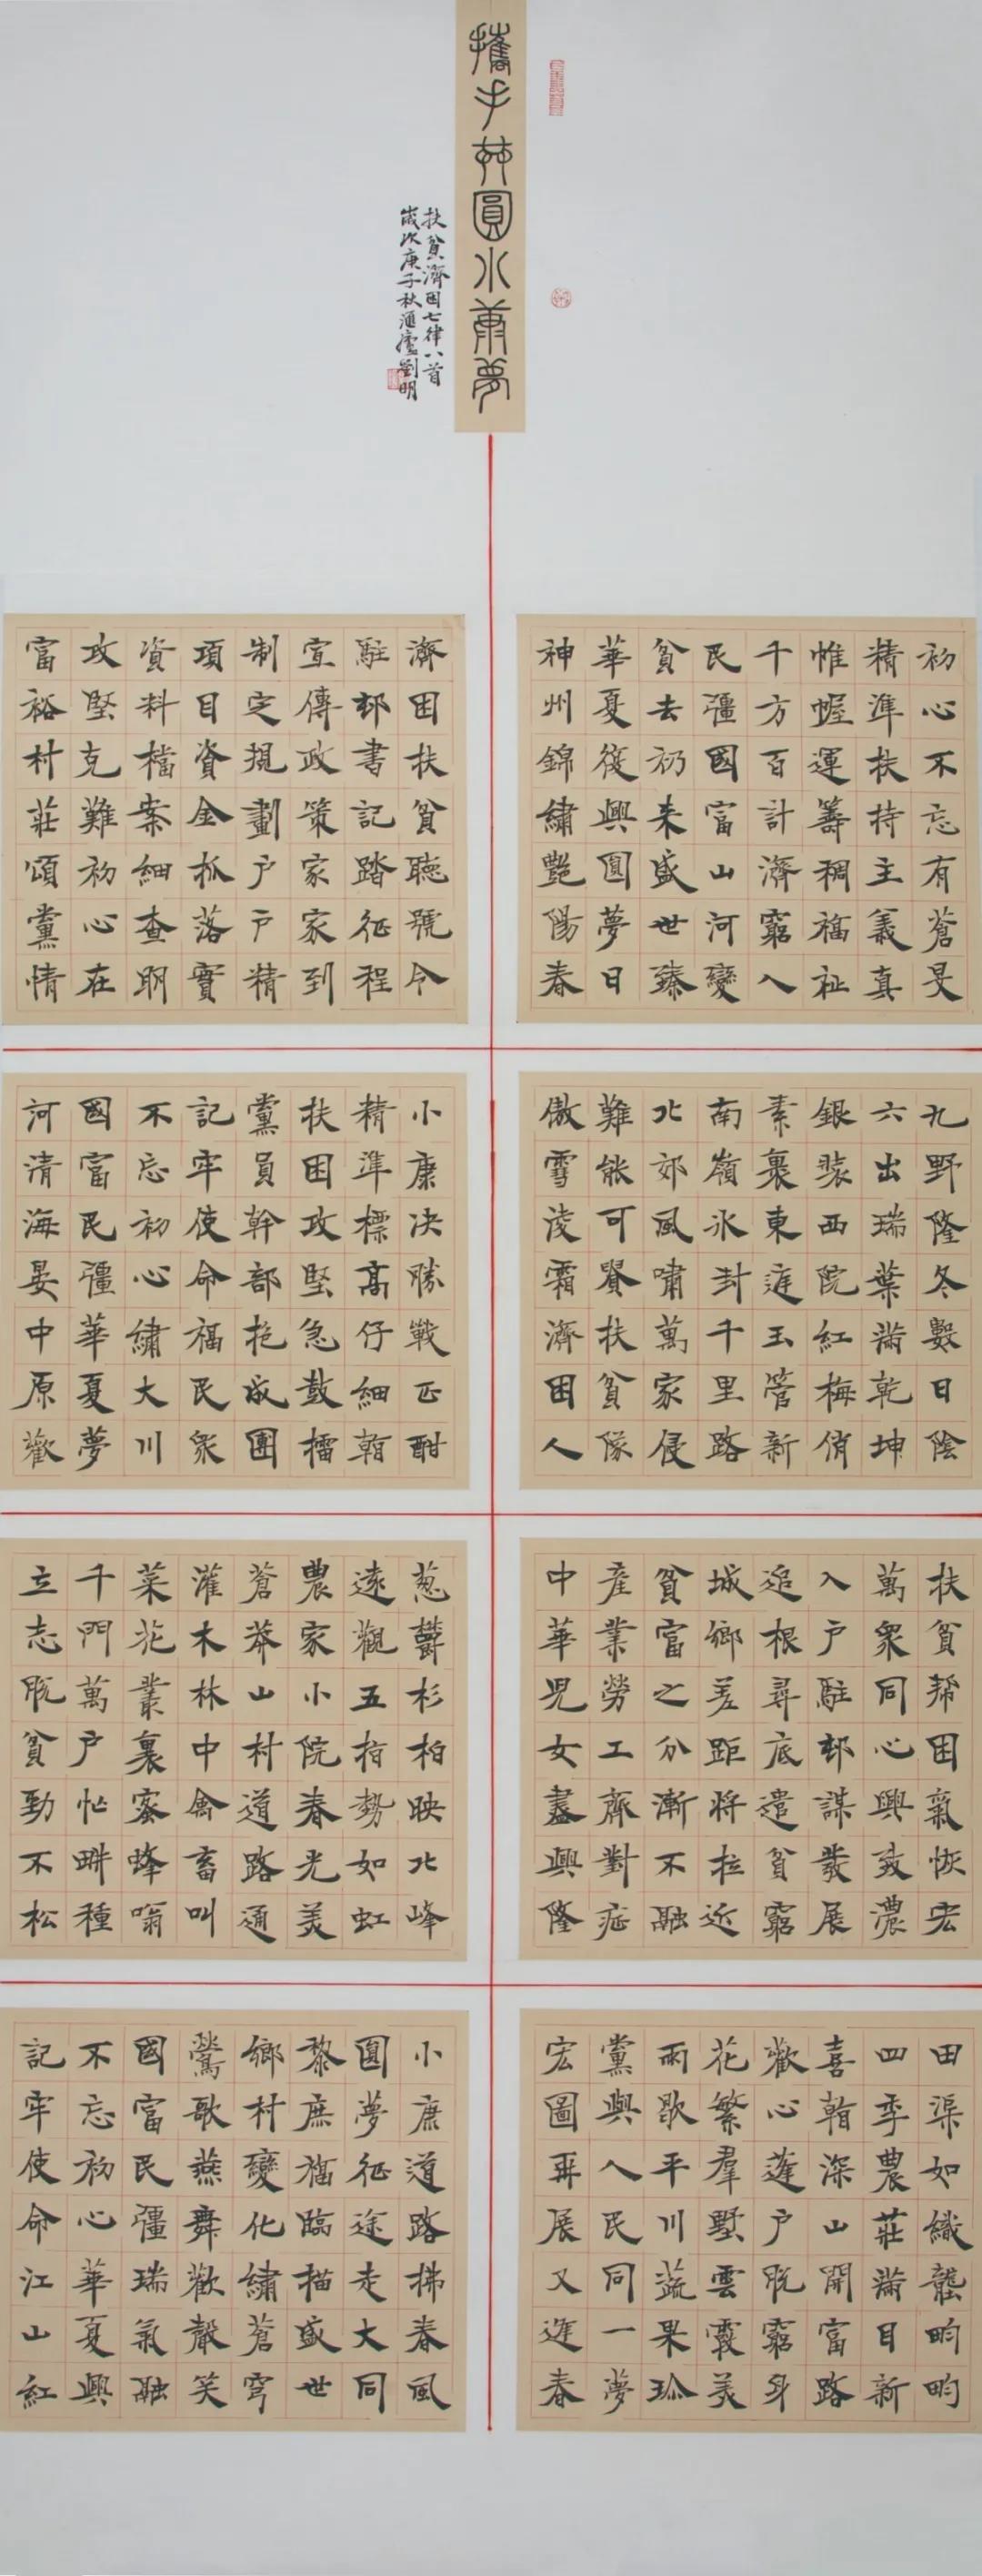 攜手共圓小康夢
扶貧濟困七律八首
歲次庚子秋滙廬劉明
初心不忘有蒼旻
精準扶持主義真
帷幄運籌稠福祉
千方百計濟窮人
民彊國富山河變
貧去礽来盛世臻
華夏復興圓夢日
神州錦繡艷陽春
濟困扶貧聽號令
駐邨書記踏征程
宣傳政策家家到
制定規劃户户精
項目資金抓落實
資料檔案細查明
攻堅克難初心在
富裕村莊頌黨情
九野隆冬數日陰
六出瑞葉滿乾坤
銀裝西院紅梅俏
素裹東庭玉管新
南嶺氷封千里路
北郊風嘯萬家侵
難能可貴扶貧隊
傲雪淩霜濟困人
小康决勝戰正酣
精準標高仔細翰
扶困攻堅急鼓擂
黨員幹部抱成團
記牢使命福民衆
不忘初心繡大川
國富民彊華夏夢
河清海晏中原歡
扶貧幫困氣恢宏
萬衆同心興致濃
入户駐邨謀發展
追根尋底遣貧窮
城鄉差距將拉近
貧富之分漸不融
產業勞工齊對症
中華兒女盡興隆
葱鬱杉柏映北峰
遠觀五指勢如虹
農家小院春光美
蒼莽山村道路通
灌木林中禽畜叫
菜花叢裏蜜蜂嗡
千門萬户忙畊種
立志脱貧勁不松
田渠如織壟畇畇
四季農莊滿目新
喜翰深山開富路
歡心蓬户脱窮身
花繁羣墅雲霞美
雨歇平川蔬果珍
黨與人民同一夢
宏圖再展又進春
小康道路拂春風
圓夢征途走大同
黎庶福臨描盛世
鄉村變化繡蒼穹
鶯歌燕舞歡聲笑
國富民彊瑞氣融
不忘初心華夏興
記牢使命江山紅